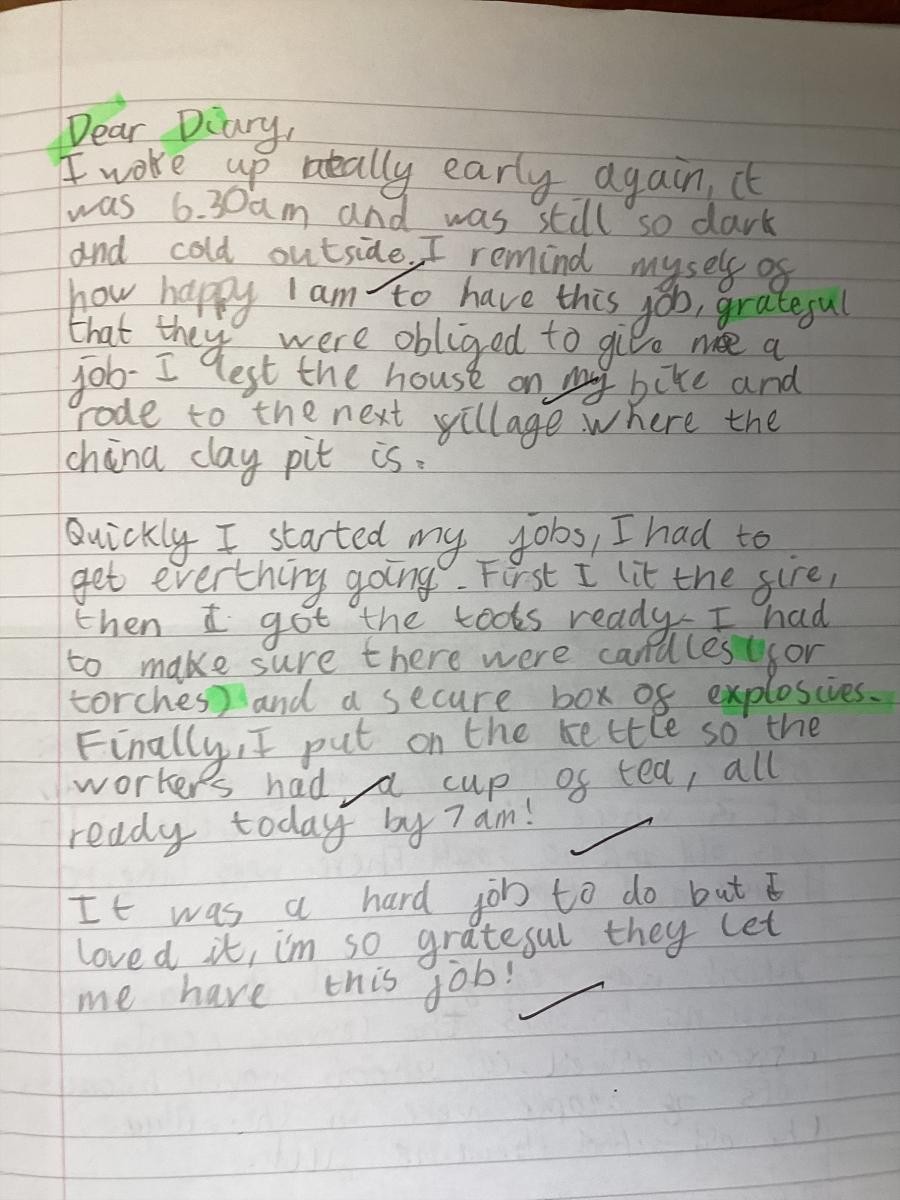 Dear Diary,
I woke up really early again, it
was 6.30am and was still so dark
and cold outside. I remind myself of
how happy I am to have this job, grateful
that they were obliged to give me a
job. I left the house on my bike and
rode to the next village where the
china clay pit is.
Quickly I started my jobs, I had to
get everthing going. First I lit the fire,
then I got the tools ready. I had
to make sure there were candles (for
torches) and a secure box of exploscies.
Finally, I put on the kettle so the
workers had a cup of tea, all
ready today by 7am!
It was a hard job to do but I
loved it, i'm so grateful they let
me have this job!